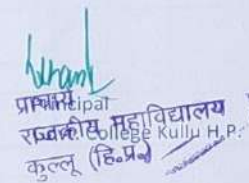 प्राचार्य
Principal
राजकीय महाविद्यालय
College Kullu H.P.
कुल्लू (हि०प्र०)